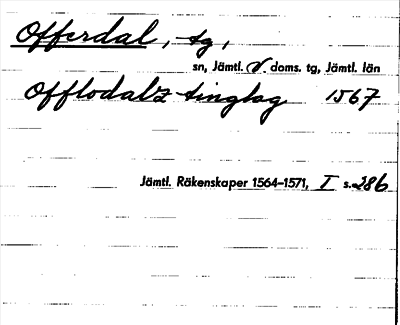 Offerdal, tg,
sn, Jämtl. V. doms. tg, Jämtl. län
Offlodalz tinglag 1567
Jämtl. Räkenskaper 1564–1571, I s. 286